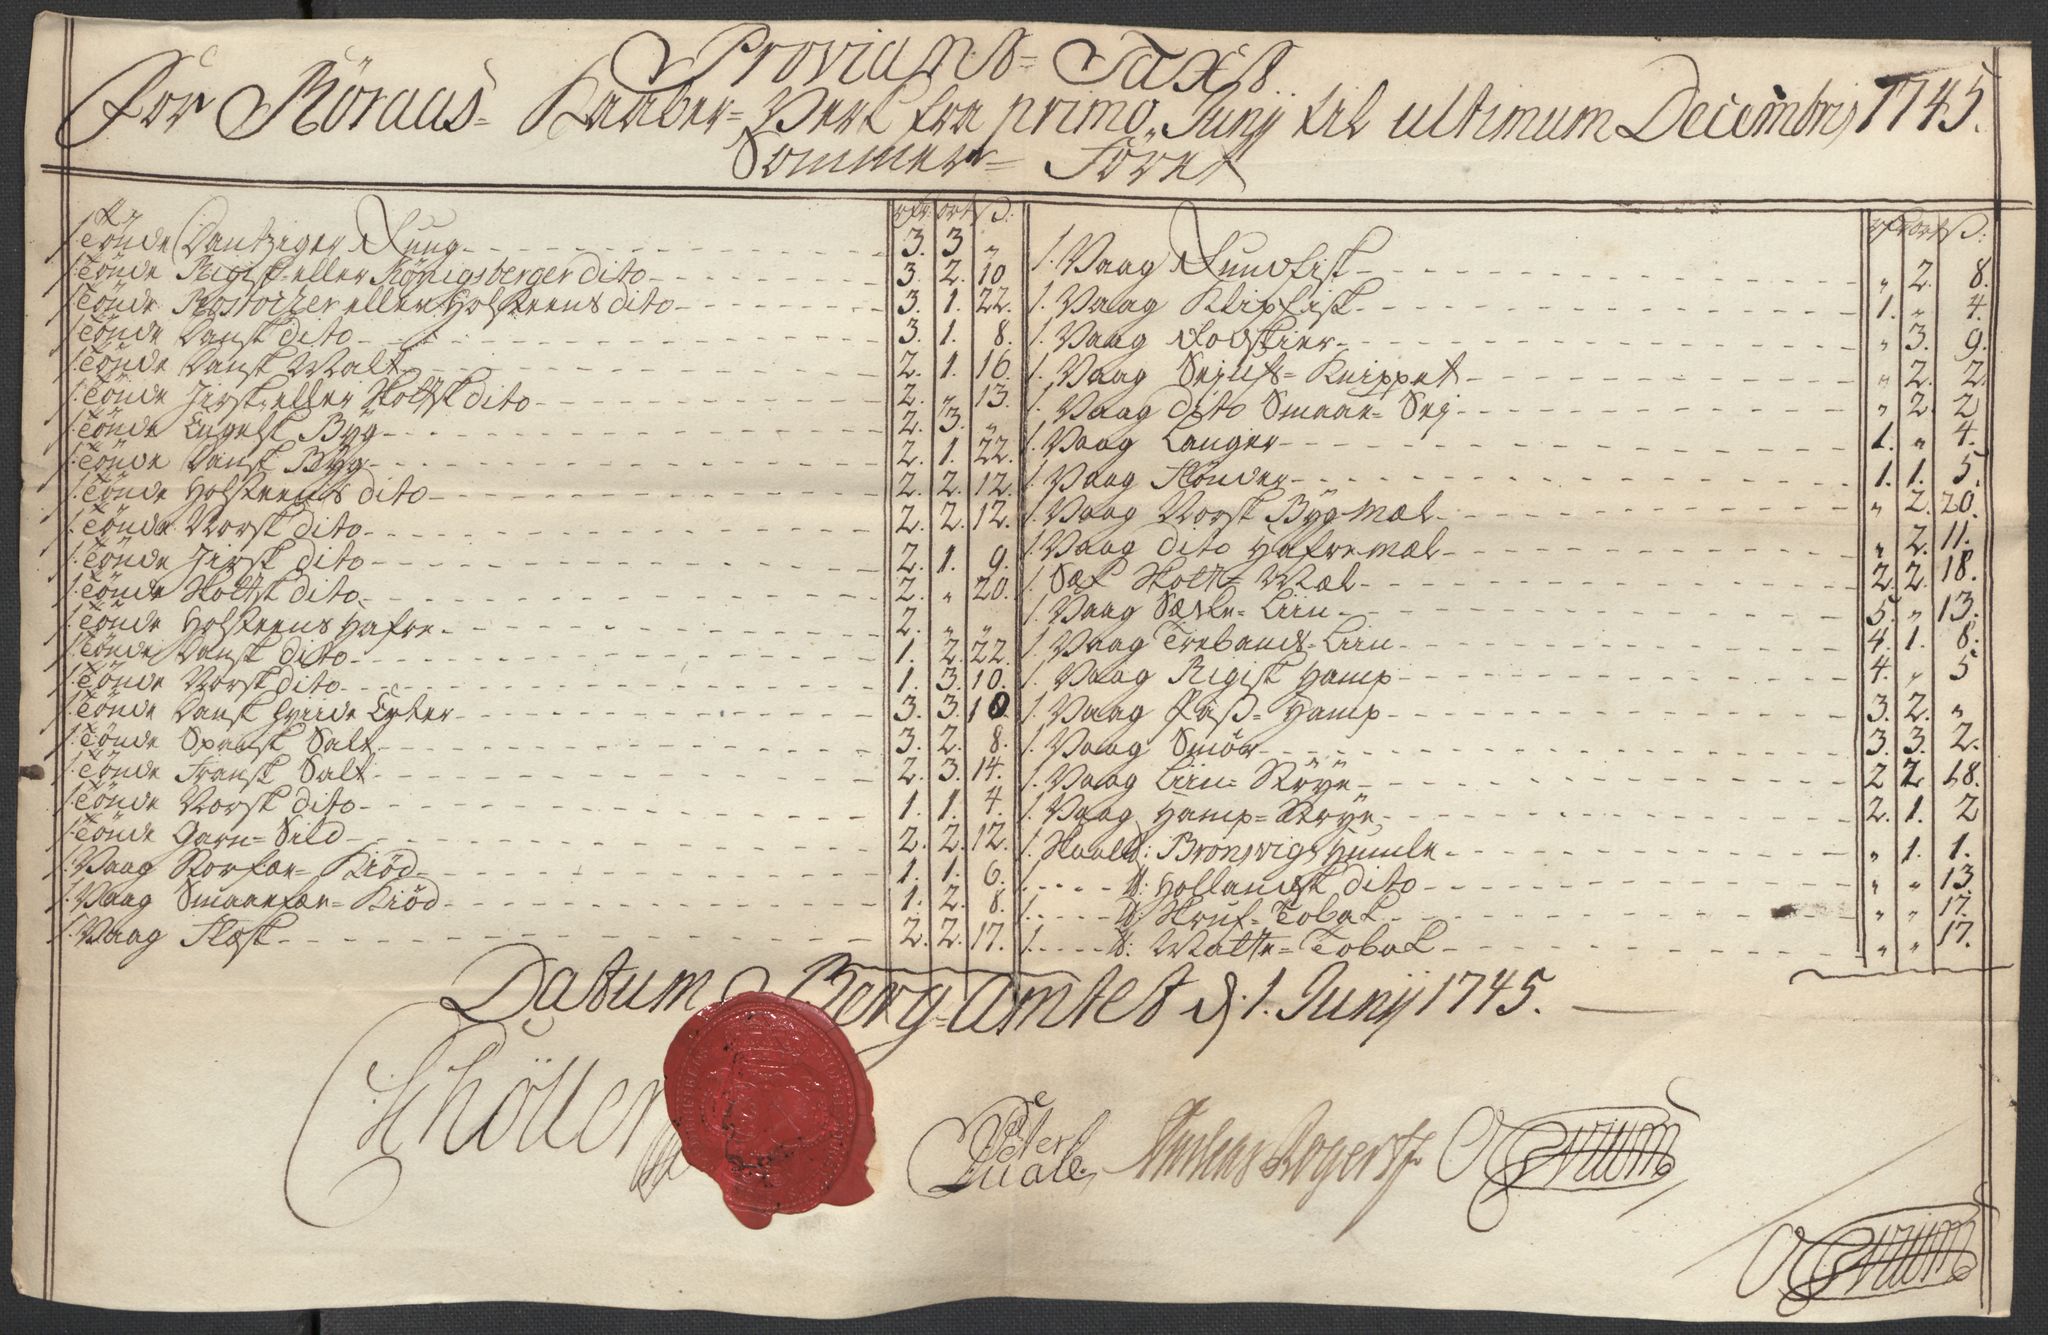 Proviants= Taxt
For Röraas= Kaaber= Verk fra primo Junij til ultimum Decembris 1745.
Sommer= Föret
rdr ort ß:
1. Tönde Dantziger Rug 3. 3 „
1. Tönde Rigisk eller Königsberger dito 3. 2. 10
1. Tönde Rostocker eller Holsteens dito 3. 1. 22.
1. Tönde Dansk dito 3. 1. 8.
1. Tönde Dansk Malt 2. 1. 16.
1. Tönde Jirsk eller Skottsk dito 2. „ 13.
1. Tönde Engelsk Byg 2. 3. „
1. Tönde Dansk Byg 2. 1. 22.
1. Tönde Holsteens dito 2. 2. 12.
1. Tönde Norsk dito 2. 2. 12.
1. Tönde Jirsk dito 2. 1. 9.
1. Tönde Skottsk dito 2. „ 20.
1. Tönde Holsteens Hafre 2. „ „
1. Tönde Dansk dito 1. 2. 22.
1. Tönde Norsk dito 1. 3. 10.
1. Tönde Dansk Hviide Erter 3. 3. 10.
1. Tönde Spansk Salt 3. 2. 8.
1. Tönde Fransk Salt 2. 3. 14.
1. Tönde Norsk dito 1. 1. 4.
1. Tönde Garn= Sild 2. 2. 12.
1. Vaag Storfæe= Kiöd 1. 1. 6.
1. Vaag Smaaefæe= Kiöd 1. 2. 8.
1. Vaag Flæsk 2. 2. 17.
rdr ort ß:
1. Vaag Rundfisk „ 2. 8.
1. Vaag Klipfisk 1. „ 4.
1. Vaag Rodskier „ 3. 9.
1. Vaag Sejufs= Knippet „ 2. 2.
1. Vaag dito Smaae= Sej „ 2. 2
1. Vaag Langer 1. „ 4.
1. Vaag Flönder 1. 1. 5.
1. Vaag Norsk Byg Mæl „ 2. 20.
1. Vaag dito Hafre mæl „ 2. 11.
1. Sæk Skott= Mæl 2. 2. 18.
1. Vaag Sædle= Liin 5. „ 13.
1. Vaag Trebands= Liin 4. 1. 8.
1. Vaag Rigisk Hamp 4. „ 5
1. Vaag Pass= Hamp 3. 2. „
1. Vaag Smör 3. 3. 2.
1. Vaag Liin= Strye 2 2 18.
1. Vaag Hamp= Strye 2. 1. 2
1. Skaal℔: Bronsvigs Humle „ 1. 1.
1. ℔: Hollandsk dito „ „ 13.
1. ℔: Skruf= Tobak „ „ 17.
1. ℔: Matte= Tobak „ „ 17.
Datum Berg-Amtet d. 1. Junij 1745.
Schöller
Peter